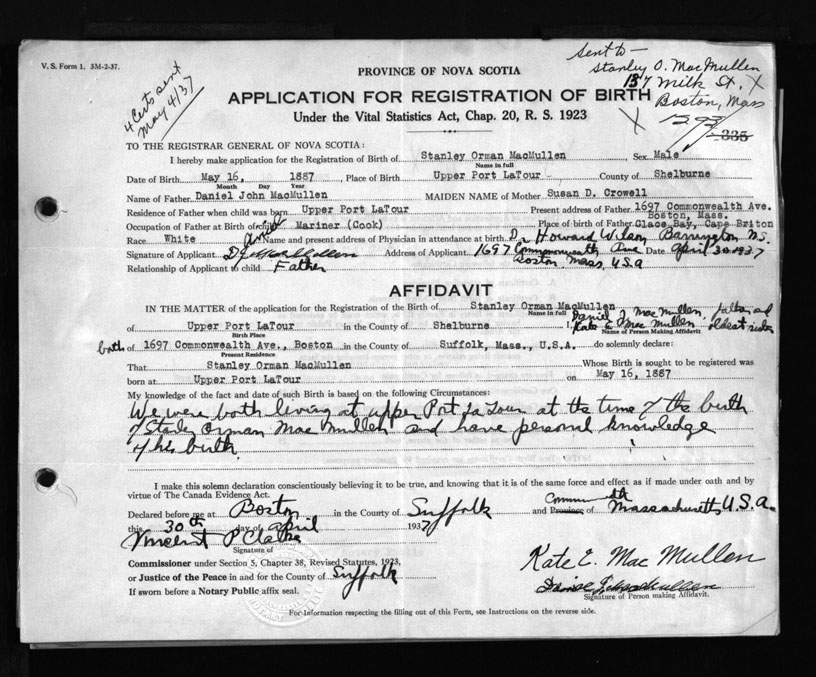 V. S. Form 1. 3M-2-37.
4 Certs sent
May 4/37
Sent to —
Stanley O. MacMullen
157 Milk St. X
Boston, Mass
PROVINCE OF NOVA SCOTIA
APPLICATION FOR REGISTRATION OF BIRTH
Under the Vital Statistics Act, Chap. 20, R. S. 1923
335
TO THE REGISTRAR GENERAL OF NOVA SCOTIA:
I hereby make application for the Registration of Birth of Stanley Orman MacMullen Sex Male
Name in full
Date of Birth May 16, 1887 Place of Birth Upper Port LaTour County of Shelburne
Month Day Year
Name of Father Daniel John MacMullen MAIDEN NAME of Mother Susan D. Crowell
Residence of Father when child was born Upper Port LaTour Present address of Father 1697 Commonwealth Ave.
Boston, Mass.
Occupation of Father at Birth of child Mariner (Cook) Place of birth of Father Glace Bay, Cape Briton
Race White and Name and present address of Physician in attendance at birth Dr Howard Wilson Barrington N.S.
Signature of Applicant Address of Applicant 1697 Commonwealth Ave Date April 30 1937
Boston, Mass, U.S.A
Relationship of Applicant to child Father
AFFIDAVIT
IN THE MATTER of the application for the Registration of the Birth of Stanley Orman MacMullen
Name in full
Daniel J. MacMullen, father and
of Upper Port LaTour in the County of Shelburne I, Kate E. MacMullen oldest sister
Birth Place Name of Person Making Affidavit
both of 1697 Commonwealth Ave., Boston in the County of Suffolk, Mass., U.S.A. do solemnly declare:
Present Residence
That Stanley Orman MacMullen Whose Birth is sought to be registered was
born at Upper Port LaTour on May 16, 1887
My knowledge of the fact and date of such Birth is based on the following Circumstances:
We were both living at upper Port La Tour at the time of the birth
of Stanley Orman MacMullen and have personal knowledge
of his birth.
I make this solemn declaration conscientiously believing it to be true, and knowing that it is of the same force and effect as if made under oath and by
virtue of The Canada Evidence Act.
Commonwealth
Declared before me at Boston in the County of Suffolk and Province of Massachusetts, U.S.A.
this 30th day of April 1937
Vincent P Clarke
Signature of
Kate E. MacMullen
Commissioner under Section 5, Chapter 38, Revised Statutes, 1923,
or Justice of the Peace in and for the County of Suffolk
Signature of Person making Affidavit.
If sworn before a Notary Public affix seal.
For Information respecting the filling out of this Form, see Instructions on the reverse side.